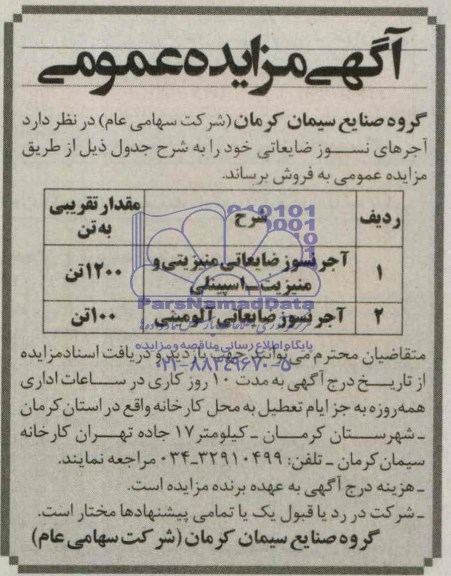 آگهی مزایده عمومی
گروه صنایع سیمان کرمان (شرکت سهامی عام) در نظر دارد
آجرهای نسوز ضایعاتی خود را به شرح جدول ذیل از طریق
مزایده عمومی به فروش برساند.
ردیف شرح مقدار تقریبی به تن
۱ آجر نسوز ضایعاتی منیزیتی و منیزیت ـ اسپینلی ۱۲۰۰ تن
۲ آجر نسوز ضایعاتی آلومینی ۱۰۰ تن
ParsNamadData
پایگاه اطلاع رسانی مناقصه و مزایده
۰۲۱-۸۸۳۴۹۶۷۰-۵
متقاضیان محترم می‌توانند جهت بازدید و دریافت اسناد مزایده
از تاریخ درج آگهی به مدت ۱۰ روز کاری در ساعات اداری
همه روزه به جز ایام تعطیل به محل کارخانه واقع در استان کرمان
ـ شهرستان کرمان ـ کیلومتر ۱۷ جاده تهران کارخانه
سیمان کرمان ـ تلفن: ۳۲۹۱۰۴۹۹-۰۳۴ مراجعه نمایند.
ـ هزینه درج آگهی به عهده برنده مزایده است.
ـ شرکت در رد یا قبول یک یا تمامی پیشنهادها مختار است.
گروه صنایع سیمان کرمان (شرکت سهامی عام)